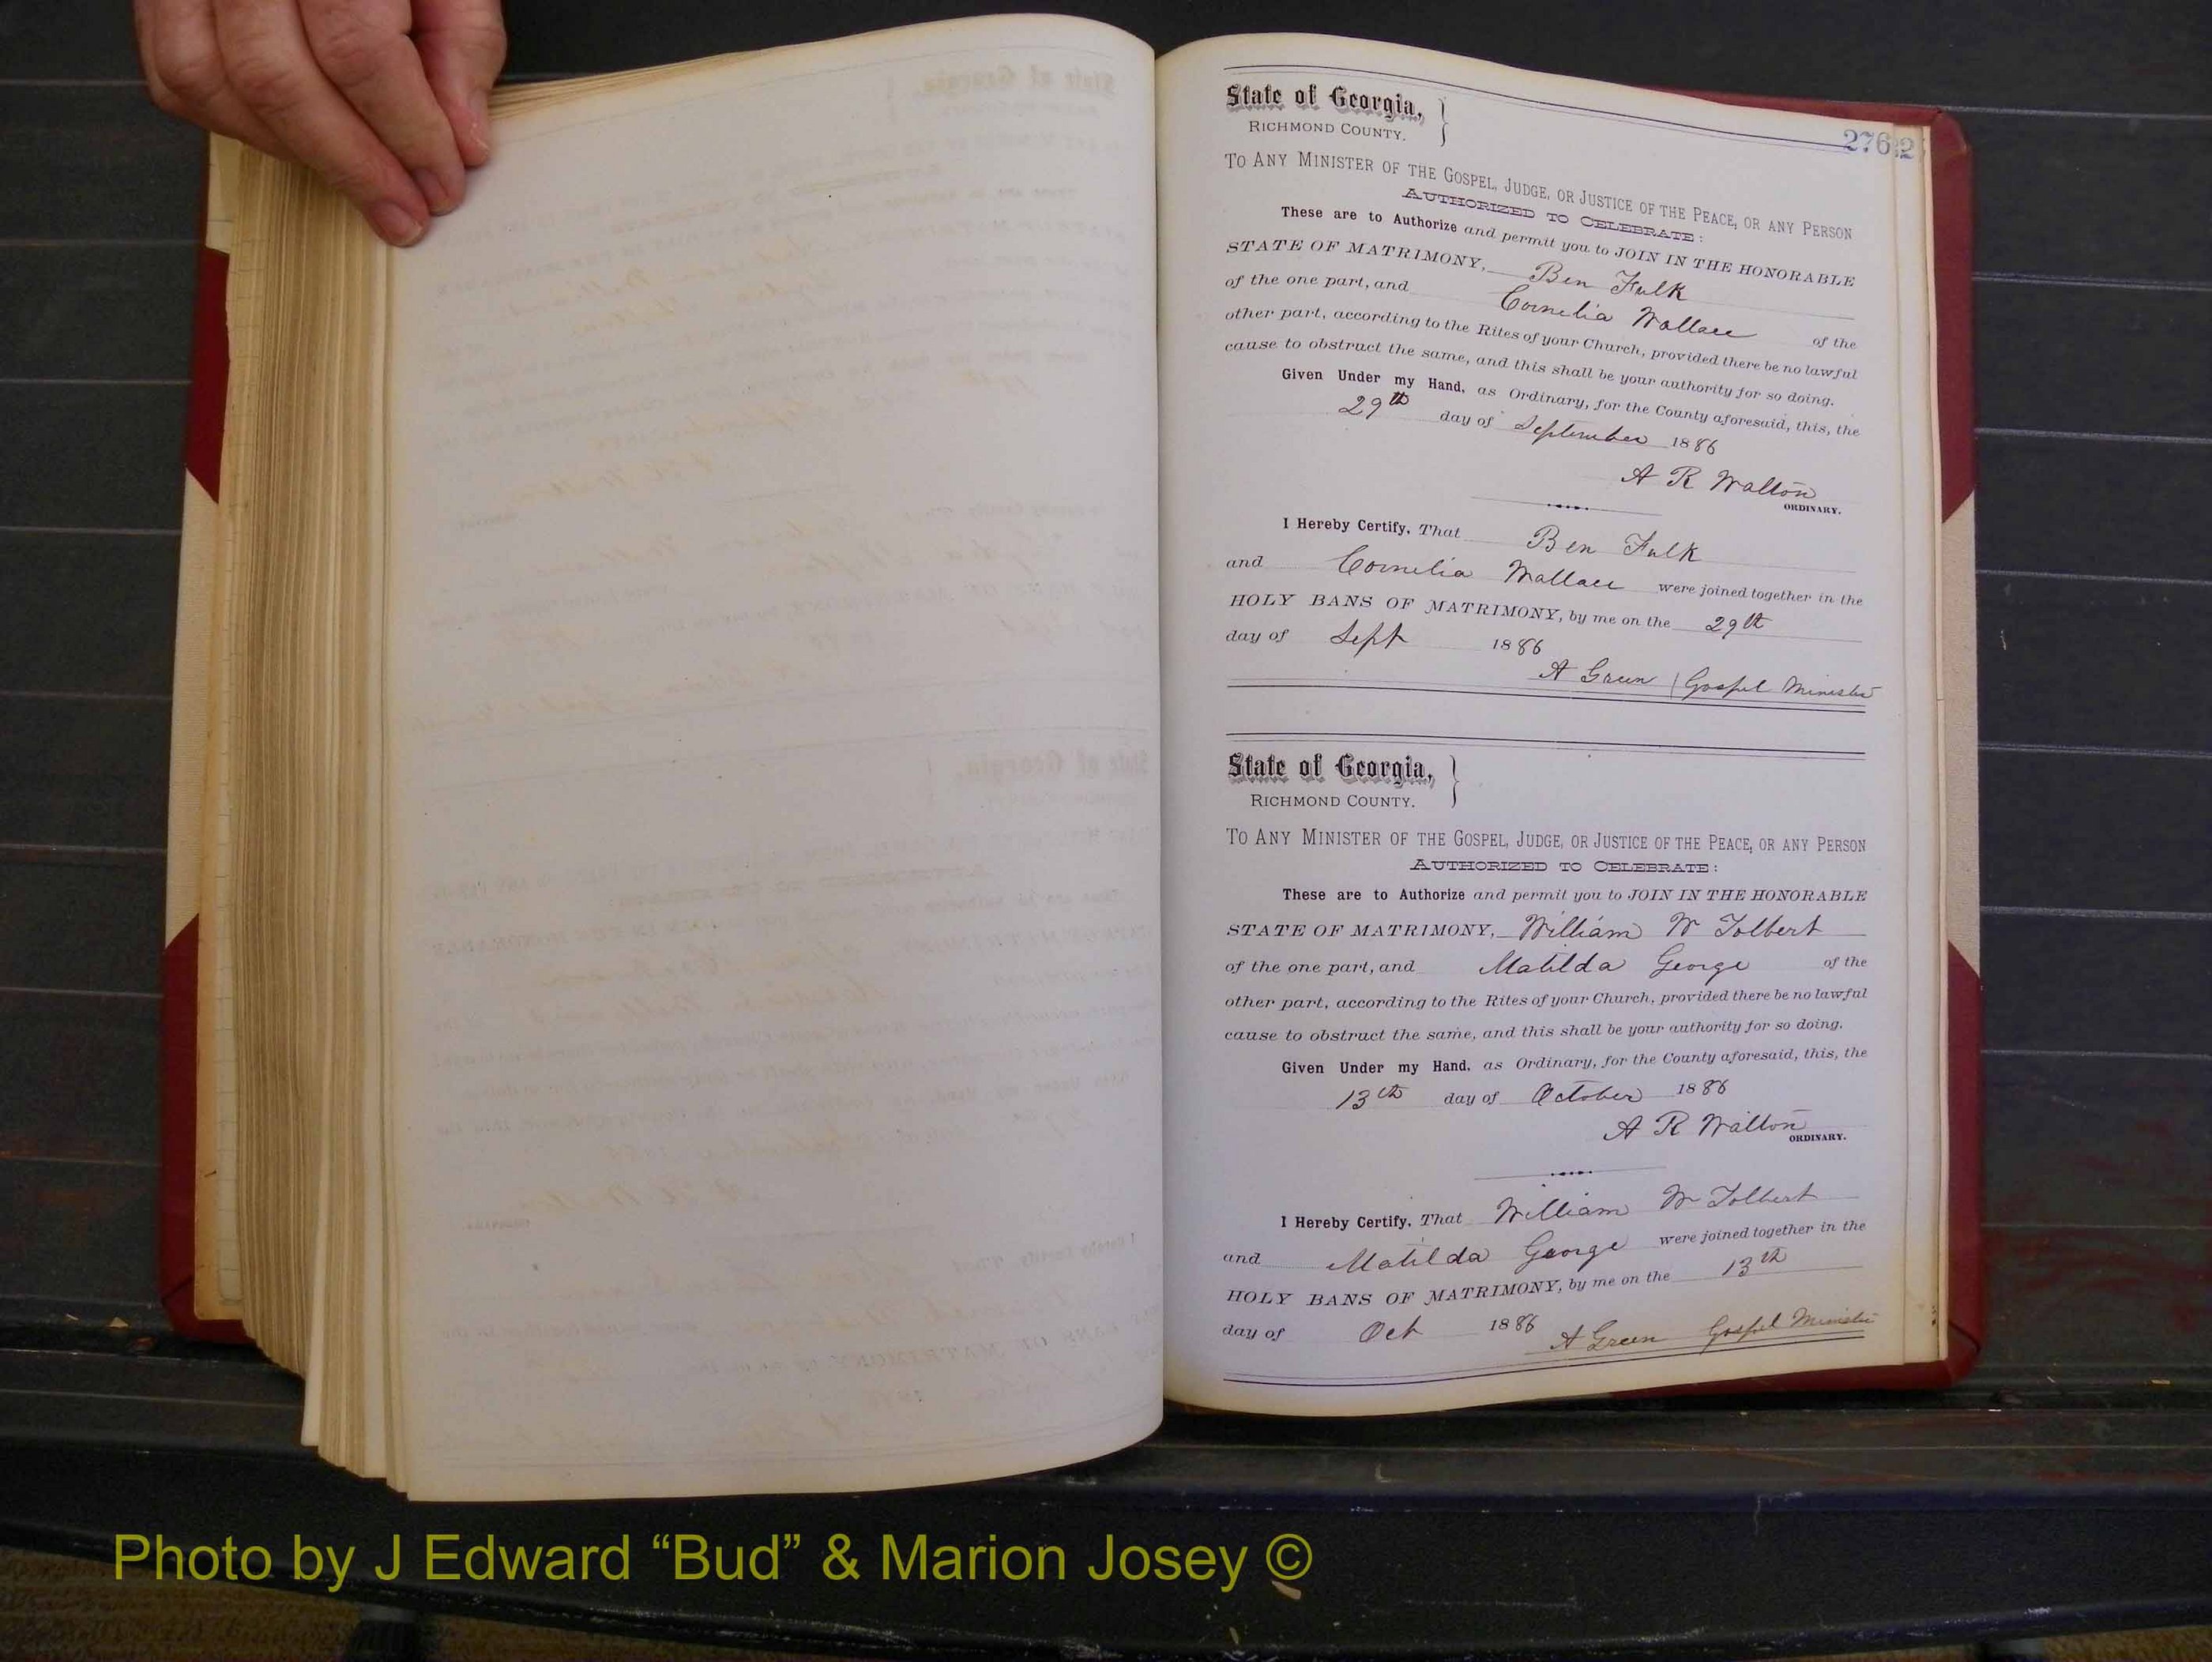 276
State of Georgia,
RICHMOND COUNTY.
TO ANY MINISTER OF THE GOSPEL, JUDGE, OR JUSTICE OF THE PEACE, OR ANY PERSON
AUTHORIZED TO CELEBRATE:
These are to Authorize and permit you to JOIN IN THE HONORABLE
STATE OF MATRIMONY, Ben Fulk
of the one part, and Cornelia Wallace of the
other part, according to the Rites of your Church, provided there be no lawful
cause to obstruct the same, and this shall be your authority for so doing.
Given Under my Hand, as Ordinary, for the County aforesaid, this, the
29th day of September 1886
A R Walton
ORDINARY.
I Hereby Certify, That Ben Fulk
and Cornelia Wallace were joined together in the
HOLY BANS OF MATRIMONY, by me on the 29th
day of Sept 1886
A Green Gospel Minister
State of Georgia,
RICHMOND COUNTY.
TO ANY MINISTER OF THE GOSPEL, JUDGE, OR JUSTICE OF THE PEACE, OR ANY PERSON
AUTHORIZED TO CELEBRATE:
These are to Authorize and permit you to JOIN IN THE HONORABLE
STATE OF MATRIMONY, William W Tolbert
of the one part, and Matilda George of the
other part, according to the Rites of your Church, provided there be no lawful
cause to obstruct the same, and this shall be your authority for so doing.
Given Under my Hand, as Ordinary, for the County aforesaid, this, the
13th day of October 1886
A R Walton
ORDINARY.
I Hereby Certify, That William W Tolbert
and Matilda George were joined together in the
HOLY BANS OF MATRIMONY, by me on the 13th
day of Oct 1886
A Green Gospel Minister
Photo by J Edward “Bud” & Marion Josey ©